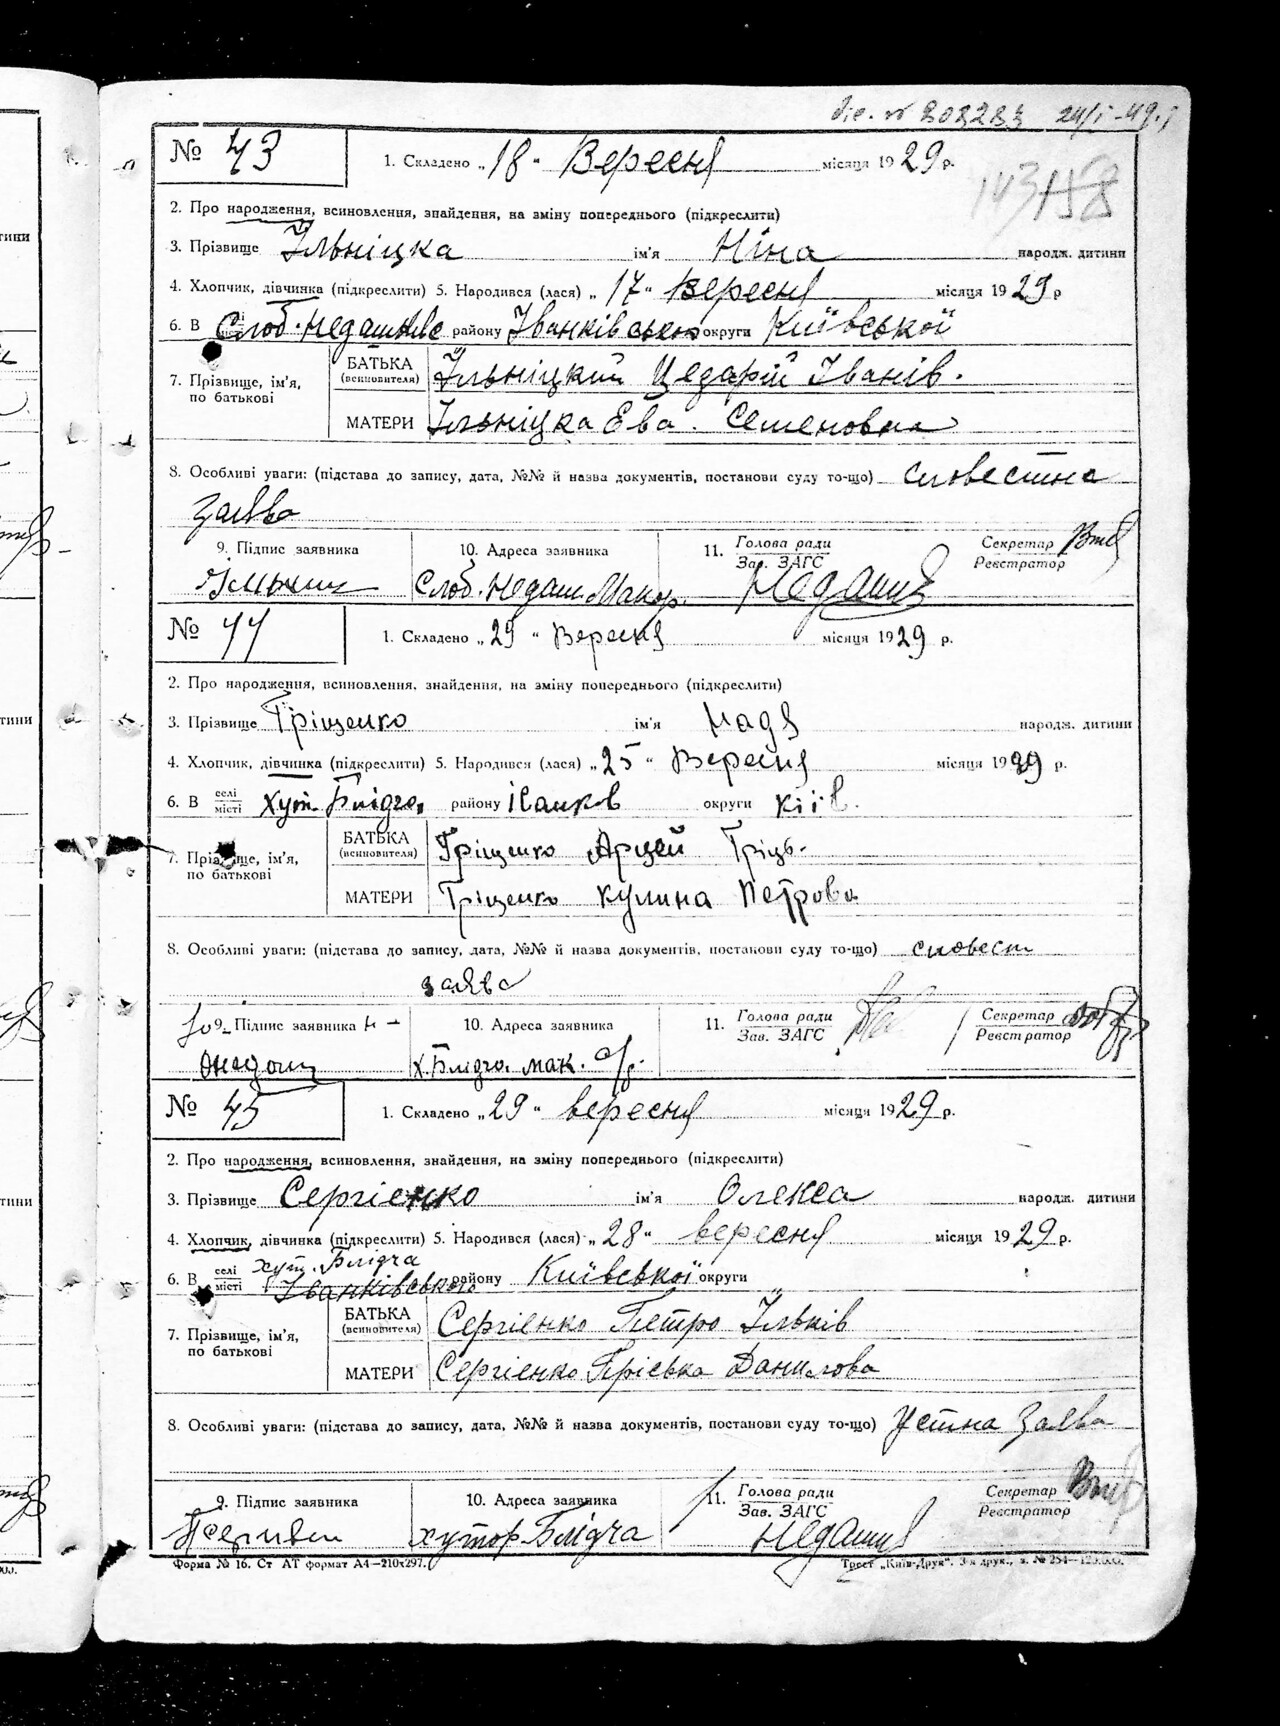 208283 24/I-49.
№ 43
1. Складено „18“ Вересня місяця 1929 р.
143158
2. Про народження, всиновлення, знайдення, на зміну попереднього (підкреслити)
3. Прізвище Ільніцка ім'я Ніна народж. дитини
4. Хлопчик, дівчинка (підкреслити) 5. Народився (лася) „17“ Вересня місяця 1929 р
6. В Слоб. району Іванківсько округи Київської
7. Прізвище, ім'я, по батькові
БАТЬКА (всиновителя) Ільніцкий Іванів.
МАТЕРИ Ільніцка Ева. Семеновна
8. Особливі уваги: (підстава до запису, дата, №№ й назва документів, постанови суду то-що) словестна
Заява
9. Підпис заявника 10. Адреса заявника 11. Голова ради Зав. ЗАГС Секретар Реєстратор
Слоб. Недаш. Макар.
№ 44
1. Складено „29“ Вересня місяця 1929 р.
2. Про народження, всиновлення, знайдення, на зміну попереднього (підкреслити)
3. Прізвище Гріщенко ім'я Надя народж. дитини
4. Хлопчик, дівчинка (підкреслити) 5. Народився (лася) „25“ Вересня місяця 1929 р.
6. В селі місті Хут. Блідча району Іванков округи Київ.
7. Прізвище, ім'я, по батькові
БАТЬКА (всиновителя) Гріщенко Арцей Гріць.
МАТЕРИ Гріщенко Кулина Петрова
8. Особливі уваги: (підстава до запису, дата, №№ й назва документів, постанови суду то-що) словест
заява
9. Підпис заявника 10. Адреса заявника 11. Голова ради Зав. ЗАГС Секретар Реєстратор
Х. Блідча. мак. с/р.
№ 45
1. Складено „29“ вересня місяця 1929 р.
2. Про народження, всиновлення, знайдення, на зміну попереднього (підкреслити)
3. Прізвище Сергієнко ім'я Олекса народж. дитини
4. Хлопчик, дівчинка (підкреслити) 5. Народився (лася) „28“ вересня місяця 1929 р.
хут. Блідча
6. В селі місті Іванківського району Київської округи
7. Прізвище, ім'я, по батькові
БАТЬКА (всиновителя) Сергіенко Петро Ільків
МАТЕРИ Сергіенко Пріська Данилова
8. Особливі уваги: (підстава до запису, дата, №№ й назва документів, постанови суду то-що) Устна Заява
9. Підпис заявника 10. Адреса заявника 11. Голова ради Зав. ЗАГС Секретар Реєстратор
хутор Блідча
Форма № 16. Ст АТ формат А4—210х297.
Трест „Київ-Друк“. 3-я друк., з. № 254—